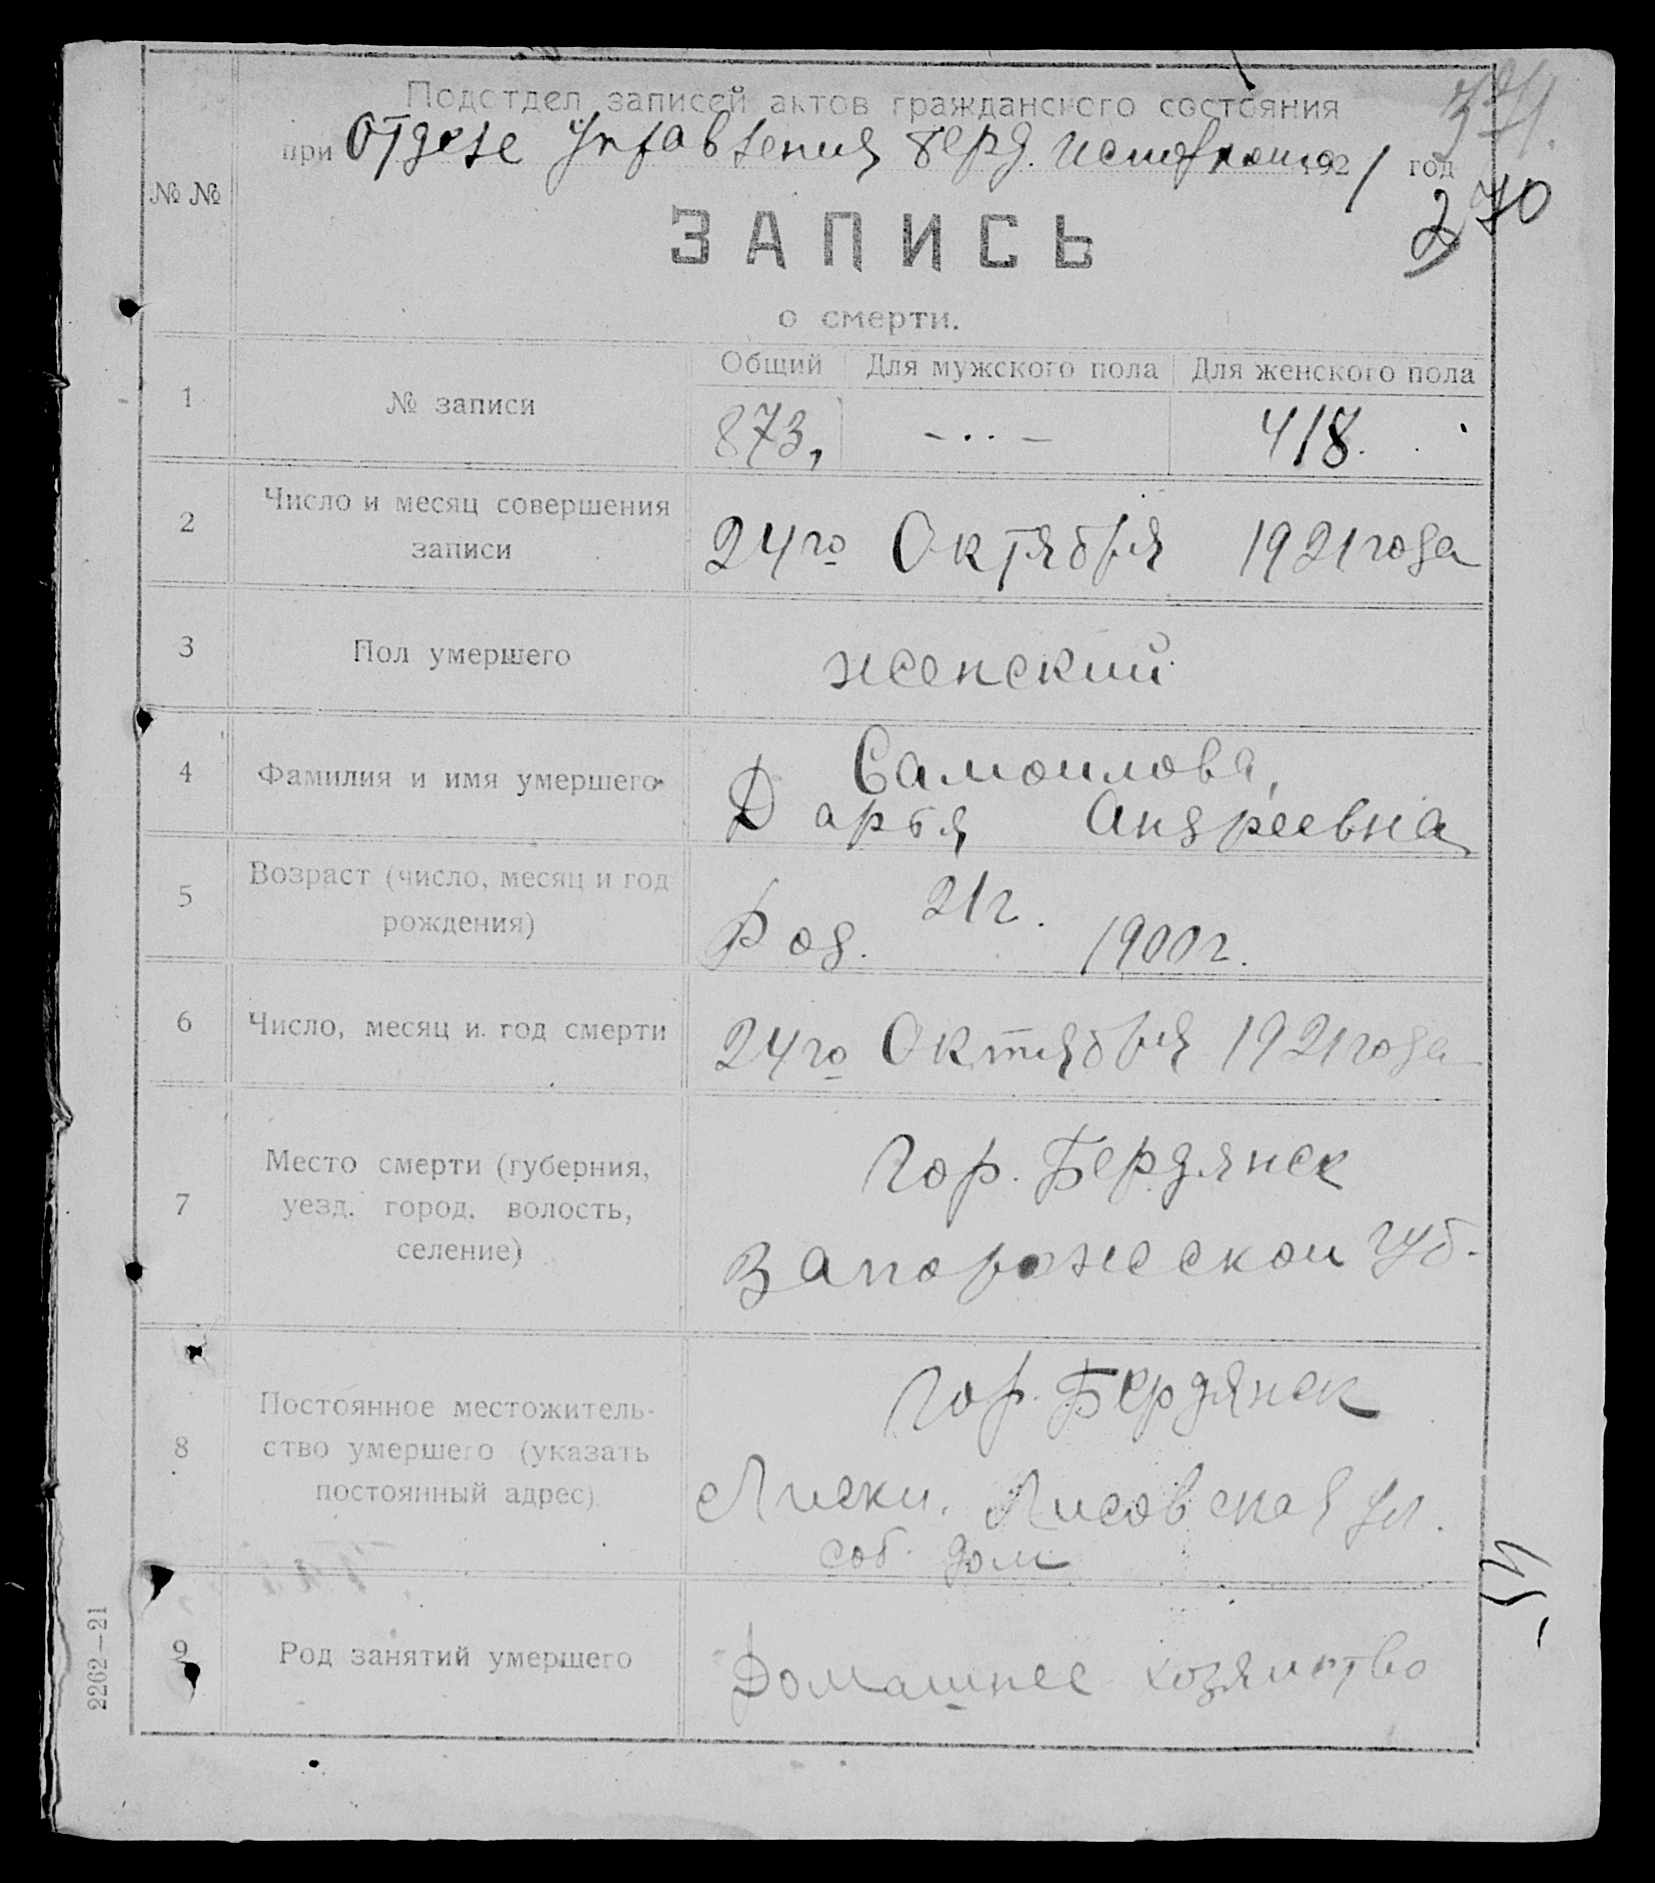 Подотдел записей актов гражданского состояния
при Отделе Управления Берд. Исполкома 1921 год
371.
270
№ №
ЗАПИСЬ
о смерти.
1 № записи
Общий Для мужского пола Для женского пола
873, - . . - 418.
2 Число и месяц совершения
записи
24го Октября 1921 года
3 Пол умершего женский
4 Фамилия и имя умершего
Самоилова,
Дарья Андреевна
5 Возраст (число, месяц и год
рождения)
21 г.
Род. 1900 г.
6 Число, месяц и год смерти 24го Октября 1921 года
7 Место смерти (губерния,
уезд, город, волость,
селение)
Гор. Бердянск
Запорожской губ.
8 Постоянное местожитель-
ство умершего (указать
постоянный адрес)
Гор. Бердянск
Лиски. Лисовская ул.
соб. дом
9 Род занятий умершего Домашнее хозяиство
2262—21